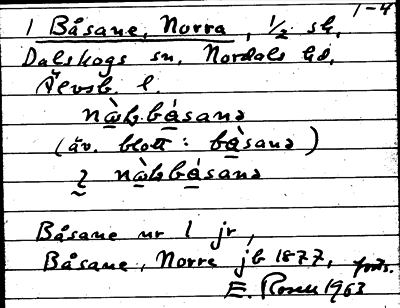 1-4
1 Båsane, Norra, 1/2 sk,
Dalskogs sn, Nordals hd,
Älvsb. l.
nàḷbbásanə
(äv. blott: bàsanə)
2 nàbbásanə
Båsane nr 1 jr,
Båsane, Norre jb 1877, forts.
E. Rosell 1963